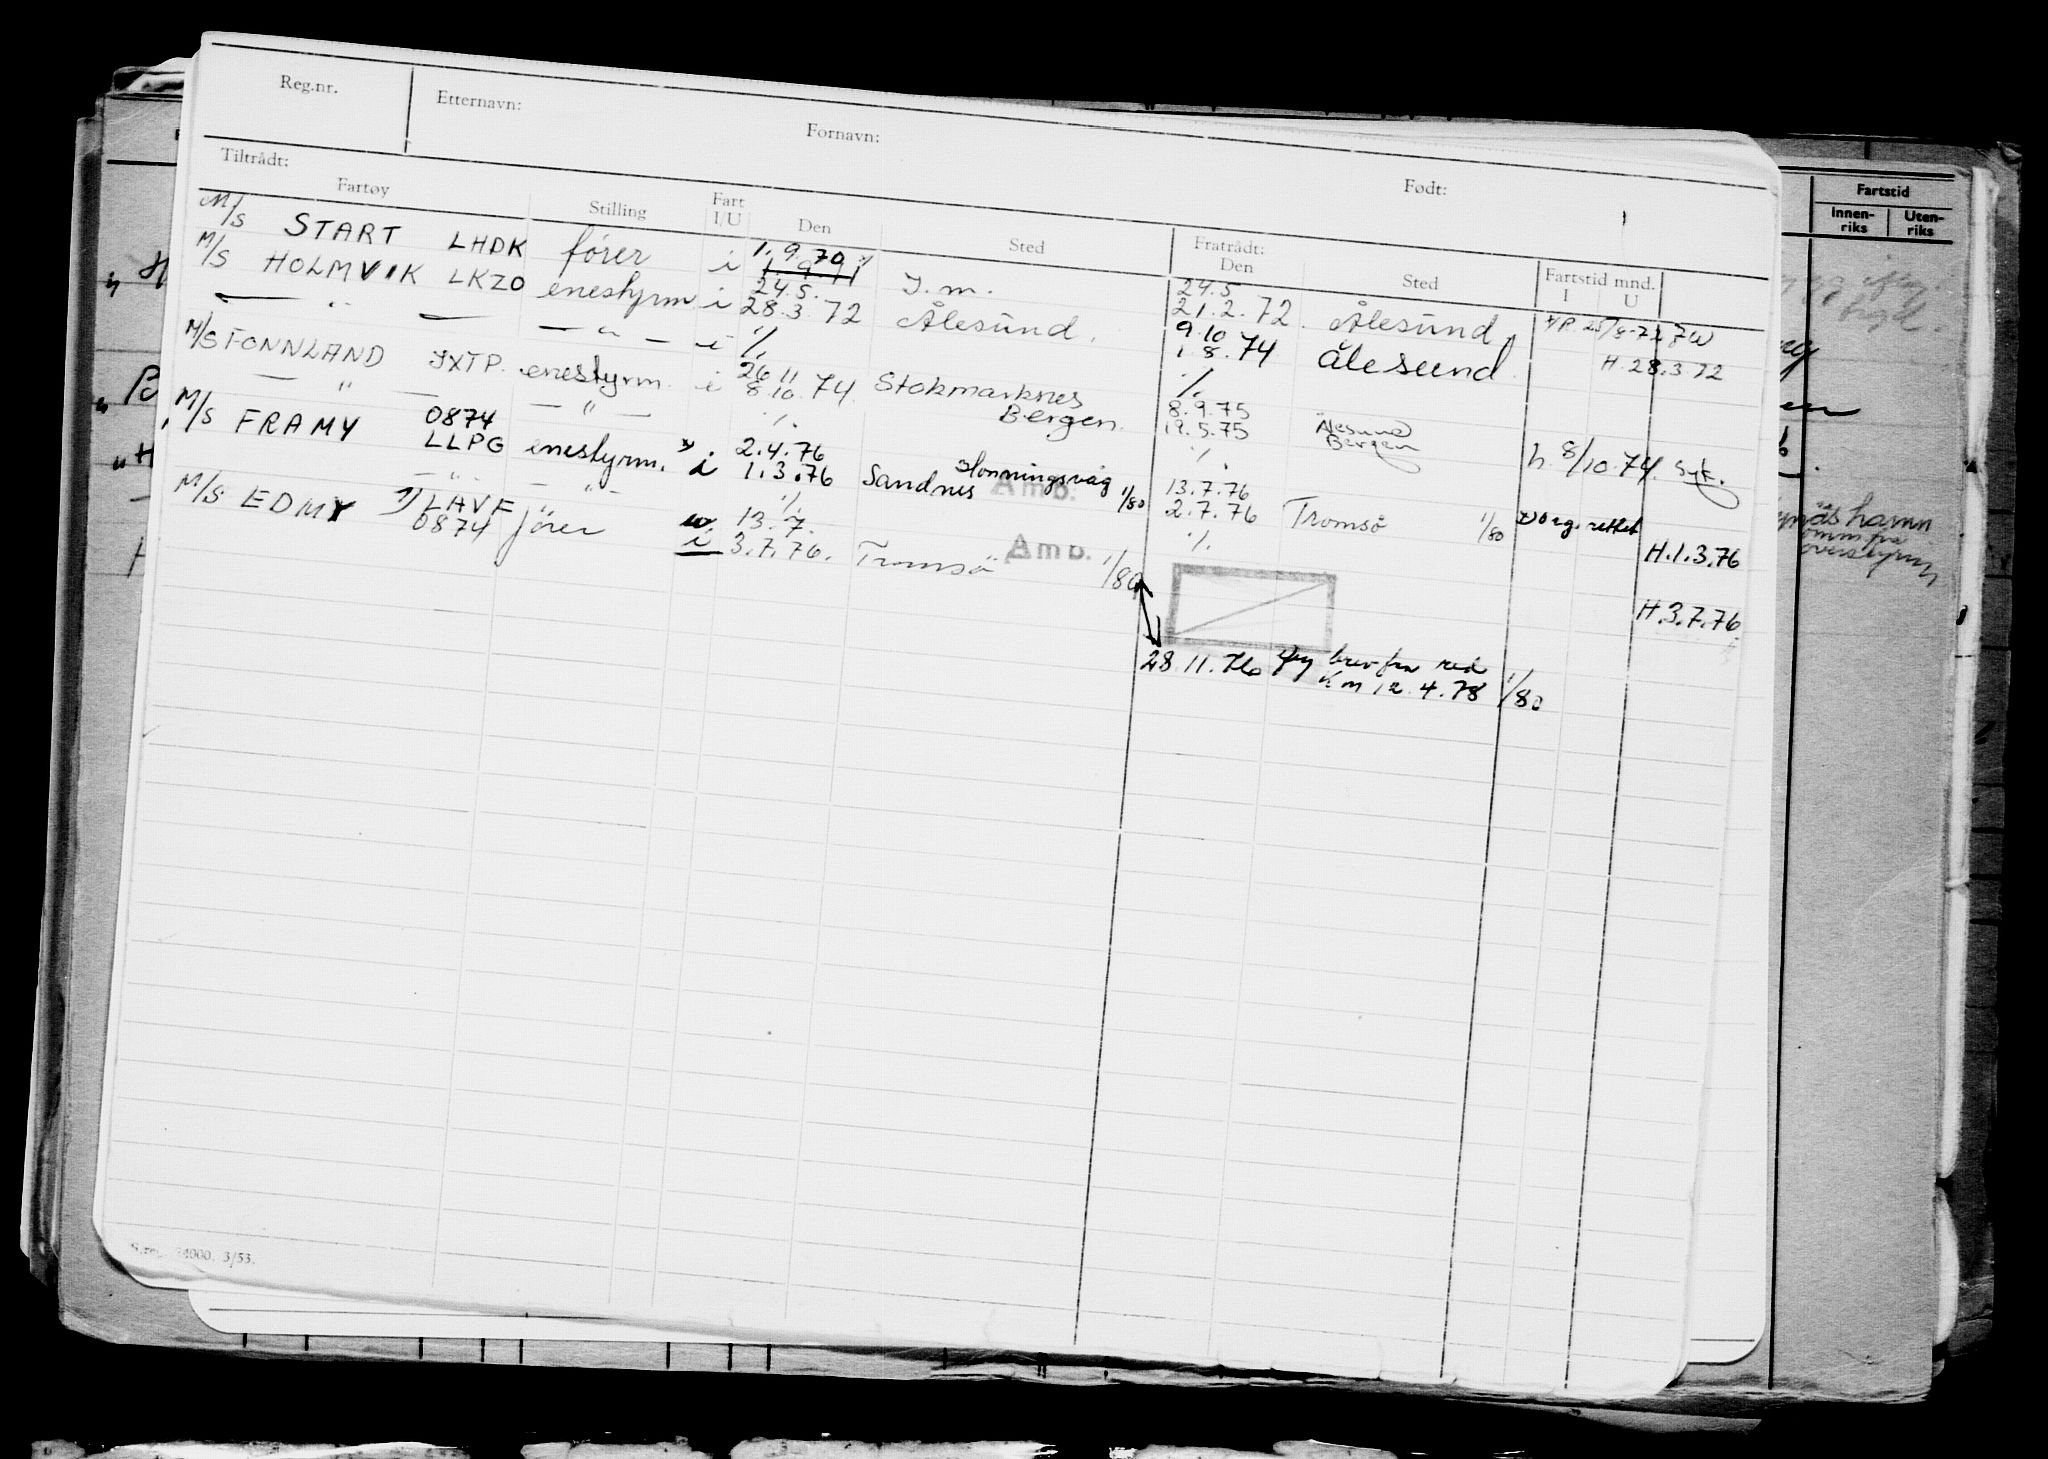 Reg.nr. Etternavn: Fornavn: Født:
Tiltrådt: Fratrådt:
Fartøy Stilling Fart I/U Den Sted Den Sted Fartstid mnd. I U
M/S START LHDK fører i 1.9.70 J.m. 24.5
M/S HOLMVIK LKZO enestyrm i 24.5. 21.2.72 Ålesund
— " — 28.3.72 Ålesund. 9.10 H. 28.3.72
— " — i 1.8.74 Ålesund
M/S FONNLAND JXTP. enestyrm. i 26.11 Stokmarknes
— " — — " — 8.10.74 Bergen. 8.9.75 Ålesund
19.5.75 Bergen h. 8/10.74. Syk.
M/S FRAMY 0874
LLPG enestyrm. i 2.4.76 Honningsvåg
1.3.76 Sandnes Amb. 1/80 13.7.76
— " — — " — 2.7.76 Tromsø 1/80 rettet H.1.3.76
M/S EDMY 1) LAVF
0874 fører 13.7.
i 3.7.76. Tromsø Amb. 1/80 H.3.7.76
28.11.76 brev fra red
Km 12.4.78 1/80
S.reg. 24000. 3/53.
Fartstid
Innen-riks Uten-riks
hamn
omm fra
overstyrm